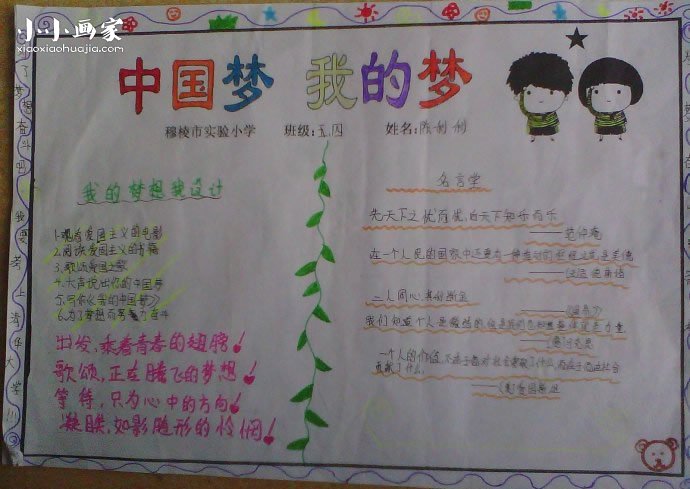 小小画家
xiaoxiaohuajia.com
中国梦 我的梦
穆棱市实验小学 班级:五、四 姓名:陈利利
我的梦想我设计
1.观看爱国主义的电影
2.阅读爱国主义的书籍
3.歌颂爱国之歌
4.大声说出你的中国梦
5.写你必害的中国梦
6.为了梦想而努力奋斗
出发,乘着青春的翅膀
歌颂,正在腾飞的梦想
等待,只为心中的方向
凝眸,如影随形的你俩
名言堂
先天下之忧而忧,后天下知乐而乐
——范仲淹
在一个人民的国家中还要有一种推动的枢纽这就是美德
二人同心其利断金
——《周易》
我们知道个人是微弱的但是我们也知道整体就是力量
一个人的价值,不在于他对社会
贡献了什么
——(美)爱因斯坦
为了梦想奋斗吧
我要考上清华大学